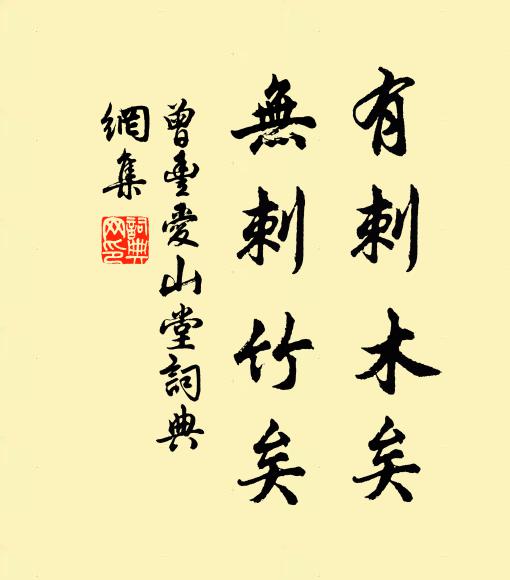 有刺木矣
無刺竹矣
曾豐愛山堂詞典
網集
詞典網印